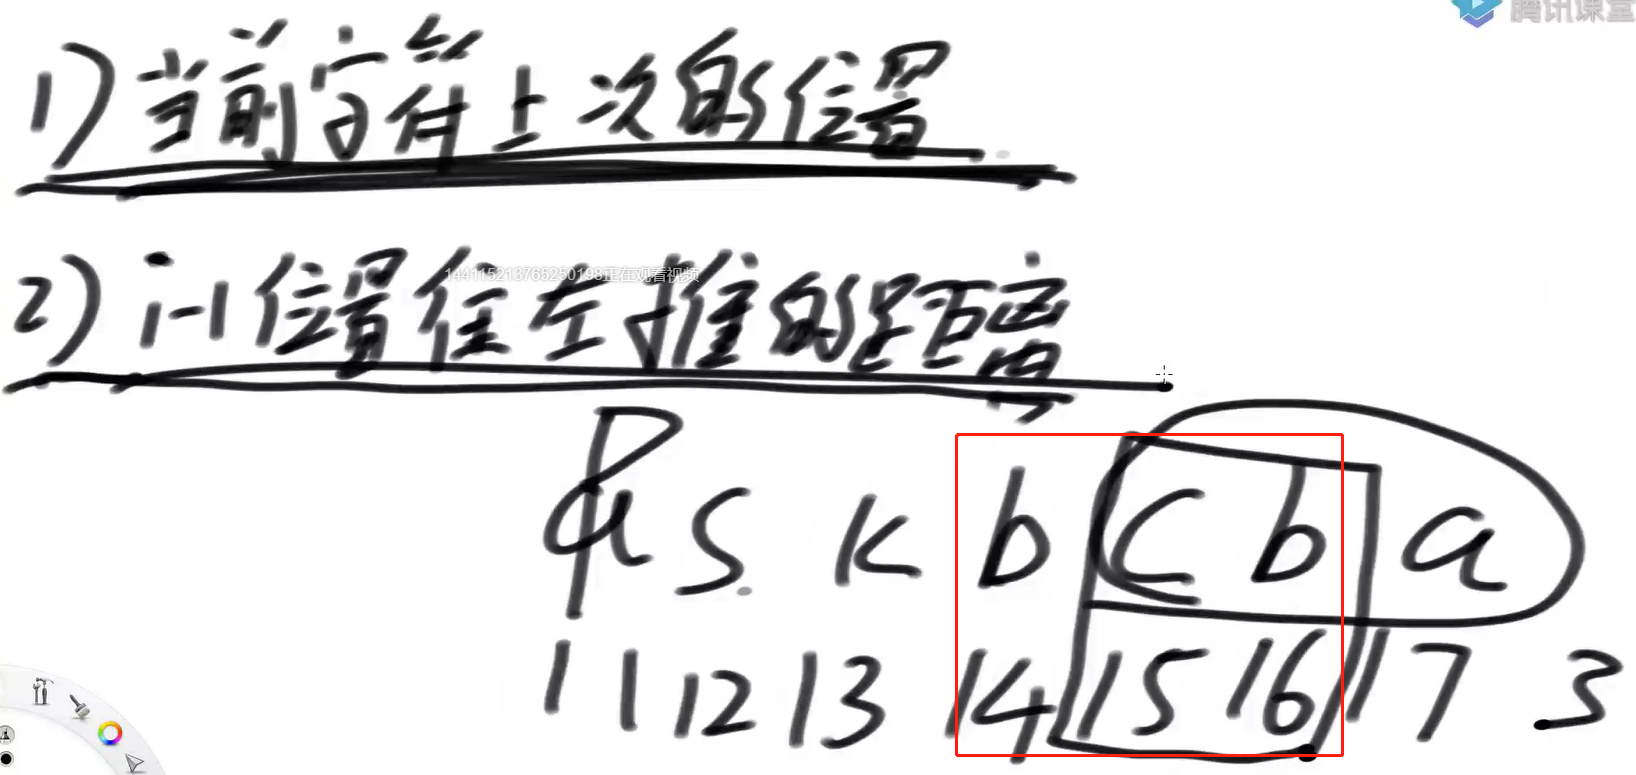 腾讯课堂
1) 当前字符上次的位置
2) i-1位置往左推的距离
144115213765250198正在观看视频
a s k b c b a
11 12 13 14 15 16 17 3